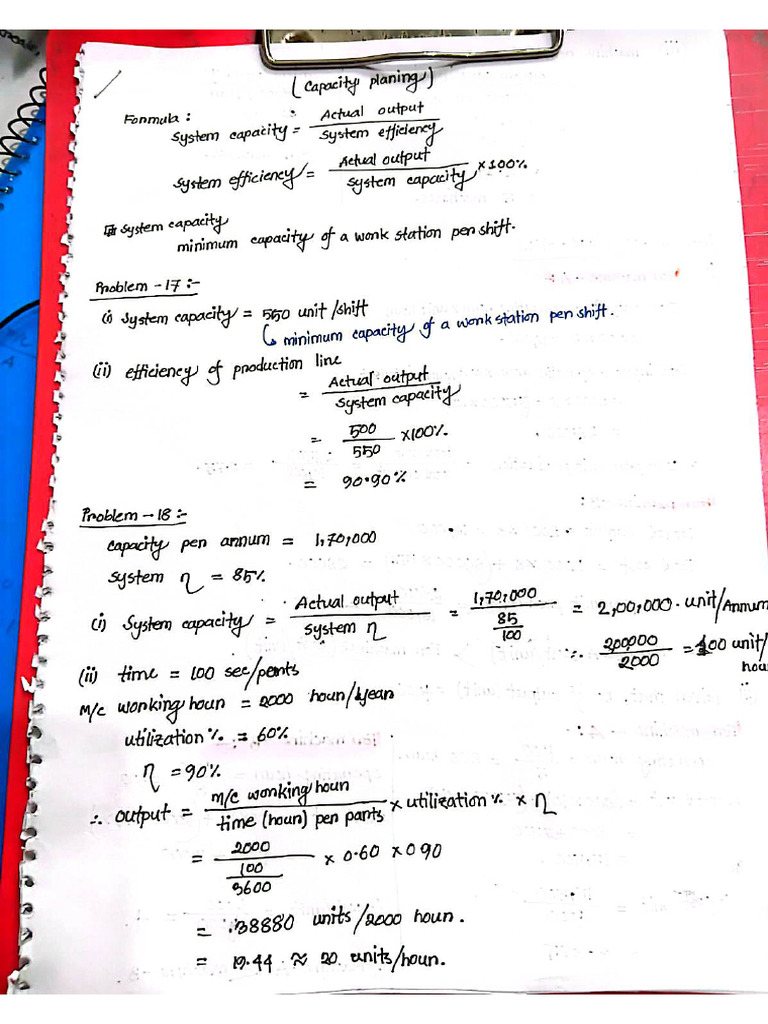 (Capacity planing)
Formula :
System capacity = Actual output / System efficiency
System efficiency = Actual output / System capacity × 100%
System capacity
minimum capacity of a work station per shift.
Problem - 17 :-
(i) System capacity = 550 unit /shift
↳ minimum capacity of a work station per shift.
(ii) efficiency of production line
= Actual output / System capacity
= 500 / 550 ×100%
= 90.90%
Problem - 18 :-
Capacity per annum = 1,70,000
System η = 85%
(i) System capacity = Actual output / System η = 1,70,000 / (85 / 100) = 2,00,000 unit/Annum
∴ 200000 / 2000 = 100 unit/
hou
(ii) time = 100 sec/parts
M/c working hour = 2000 hour/year
utilization% = 60%
η = 90%
∴ output = M/c working hour / time (hour) per parts × utilization% × η
= 2000 / (100 / 3600) × 0.60 × 0.90
= 38880 units/2000 hour.
= 19.44 ≈ 20 units/hour.